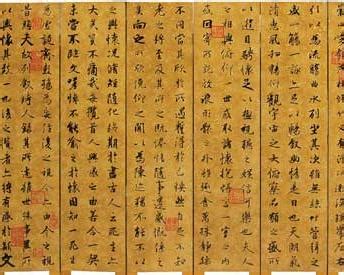 引以為流觴曲水列坐其次雖無絲竹管弦之
盛一觴一詠亦足以暢叙幽情是日也天朗氣
清惠風和暢仰觀宇宙之大俯察品類之盛所
以遊目騁懷足以極視聽之娛信可樂也夫人
之相與俯仰一世或取諸懷抱悟言一室之內
或因寄所託放浪形骸之外雖取舍萬殊靜躁
不同當其欣於所遇暫得於己快然自足不知
老之將至及其所之既惓情隨事遷感慨係之矣
向之所欣俛仰之間以為陳迹猶不能不以
之興懷況脩短隨化終期於盡古人云死生亦
大矣豈不痛哉每攬昔人興感之由若合一契
未嘗不臨文嗟悼不能喻之於懷固知一死生
為虛誕齊彭殤為妄作後之視今亦由今之視
昔悲夫故列叙時人錄其所述雖世殊事異所
以興懷其致一也後之攬者亦將有感於斯文